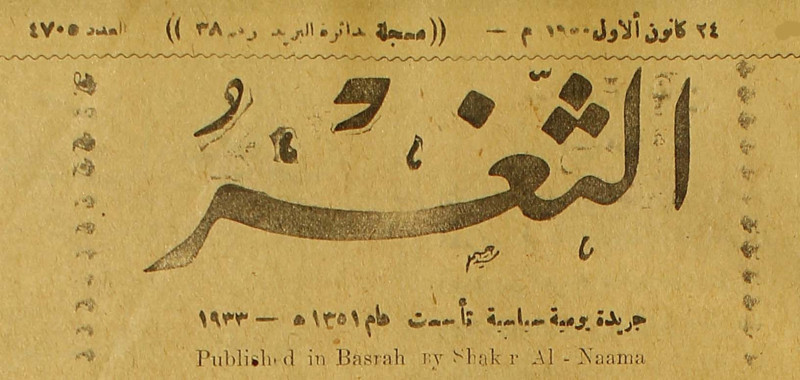 ٢٤ كانون ألاول ١٩٥٠ م — ((مسجلة بدائرة البريد رقم ٣٨ )) العدد ٤٧٠٥
الثغر
جريدة يومية سياسية تأسست عام ١٣٥١ ه — ١٩٣٣
Published in Basrah By Shaker Al - Naama